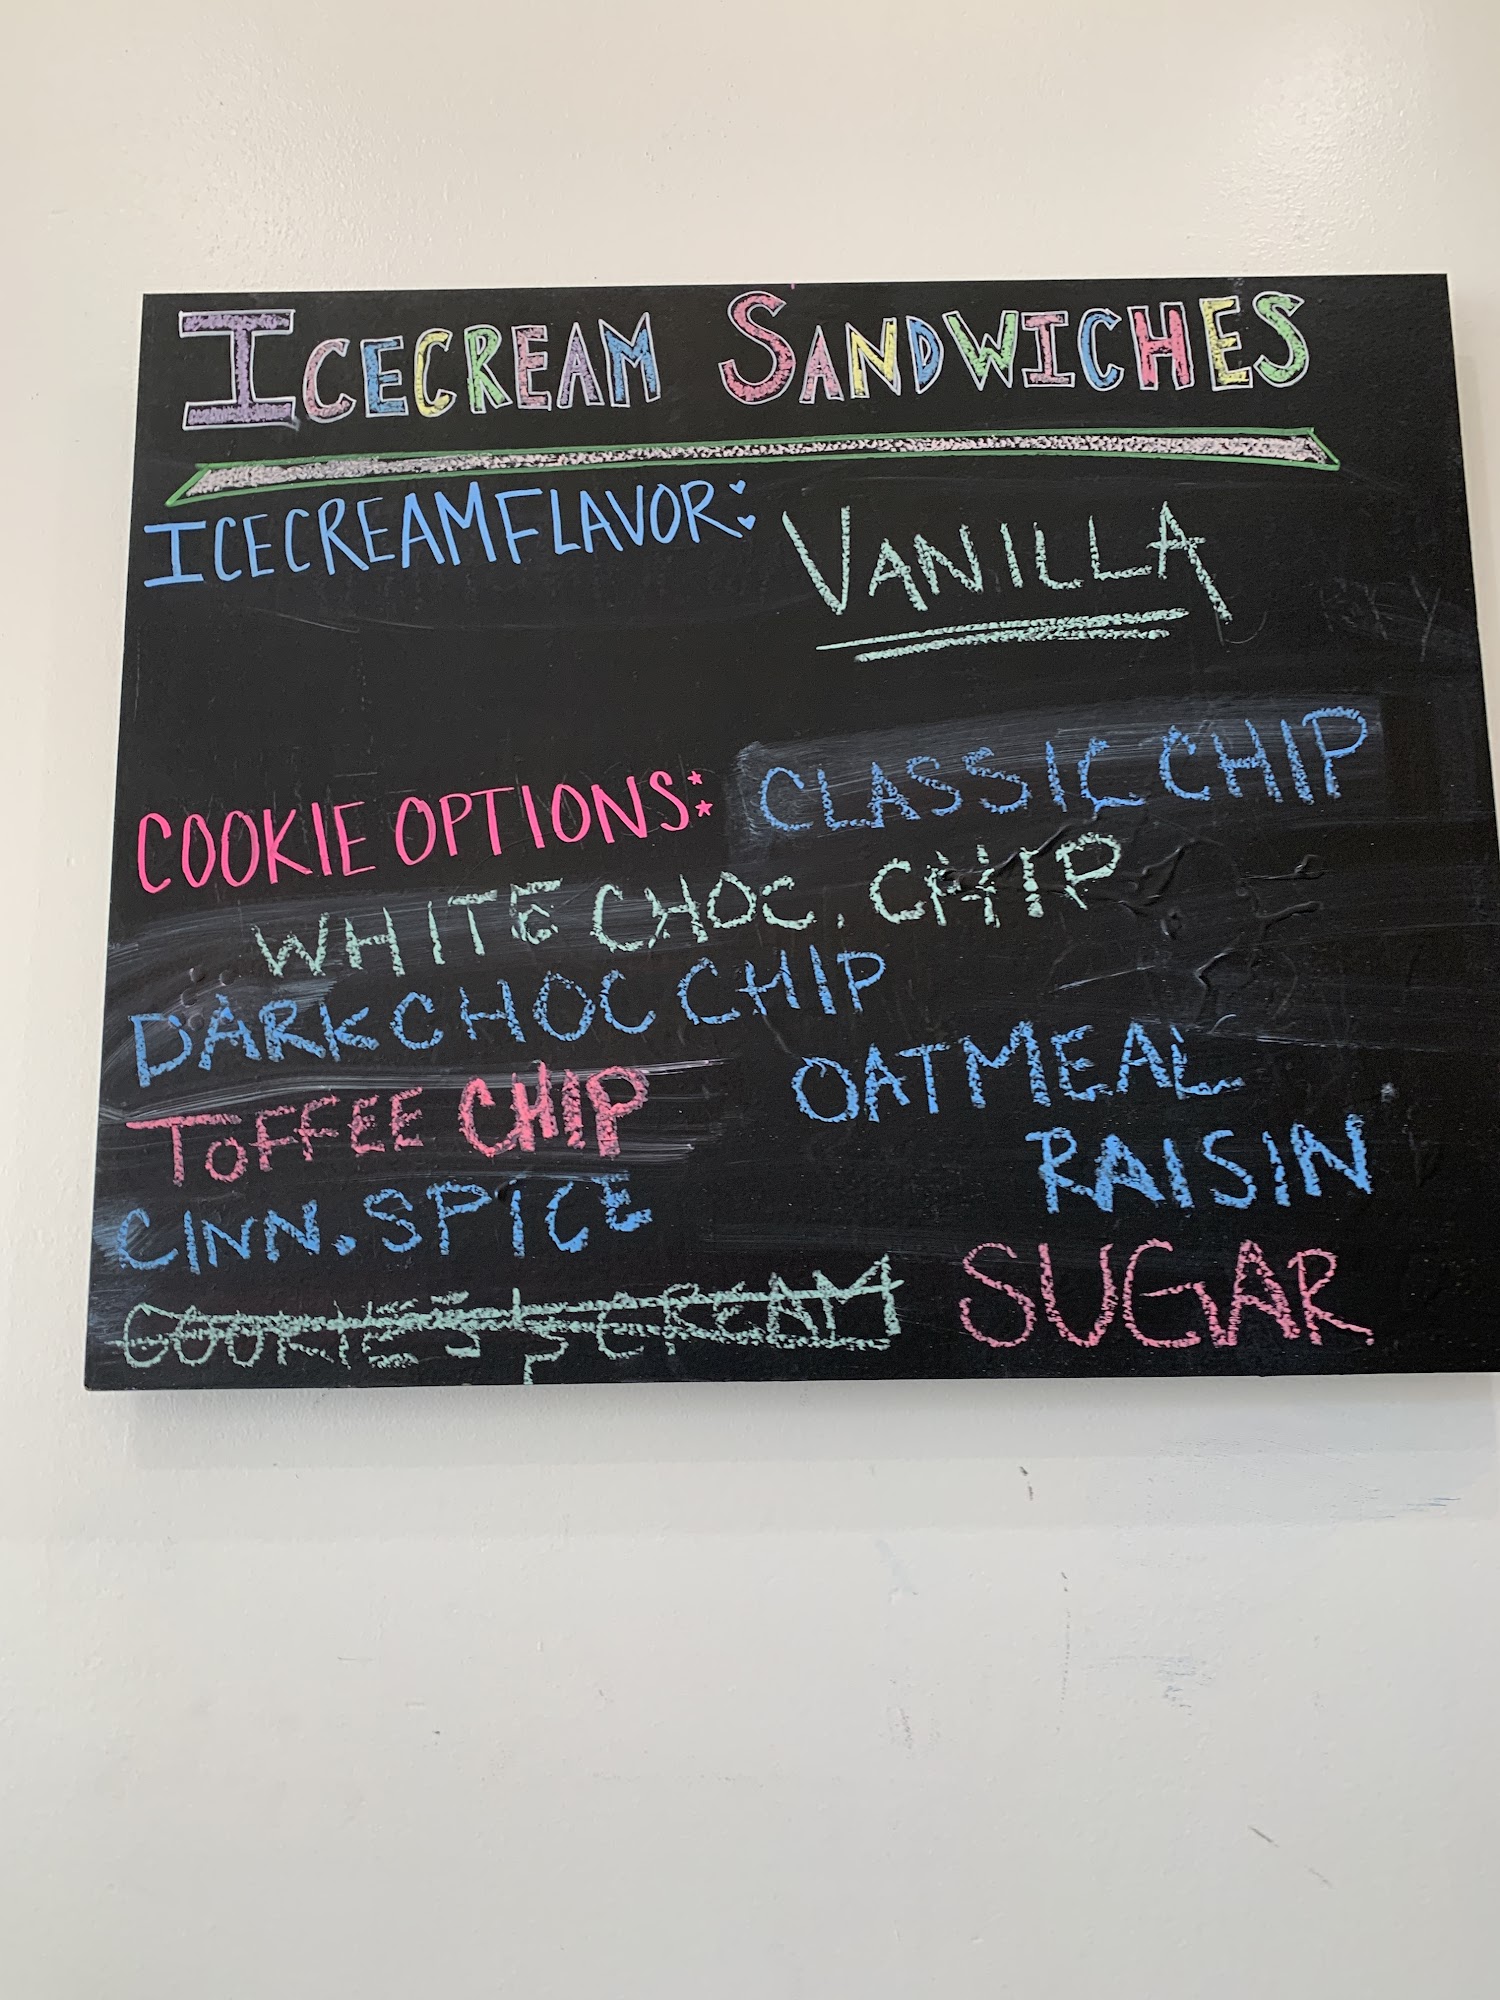 ICECREAM SANDWICHES
ICECREAM FLAVOR: VANILLA
COOKIE OPTIONS: CLASSIC CHIP
WHITE CHOC. CHIP
DARK CHOC CHIP
TOFFEE CHIP
OATMEAL
RAISIN
CINN. SPICE
COOKIES & CREAM
SUGAR